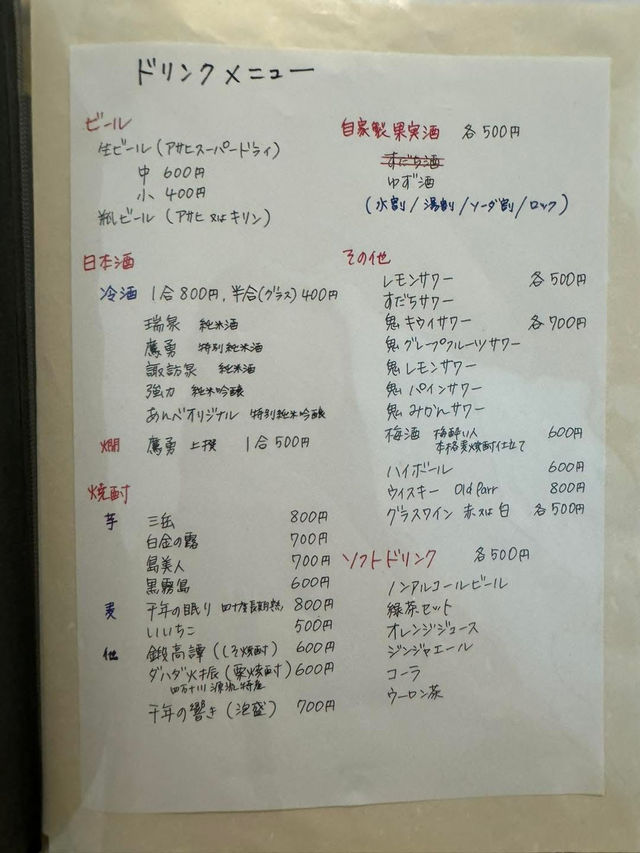 ドリンクメニュー
ビール
生ビール(アサヒスーパードライ)
中 600円
小 400円
瓶ビール(アサヒ又はキリン)
日本酒
冷酒 1合800円,半合(グラス)400円
瑞泉 純米酒
鷹勇 特別純米酒
諏訪泉 純米酒
強力 純米吟醸
あんべオリジナル 特別純米吟醸
燗 鷹勇 上撰 1合500円
焼酎
芋 三岳 800円
白金の露 700円
島美人 700円
黒霧島 600円
麦 千年の眠り 四十度長期熟 800円
いいちこ 500円
他 鍛高譚(しそ焼酎) 600円
ダバダ火振(栗焼酎) 600円
四万十川源流特産
千年の響き(泡盛) 700円
自家製果実酒 各500円
すだち酒
ゆず酒
(水割り/湯割り/ソーダ割/ロック)
その他
レモンサワー 各500円
すだちサワー
鬼キウイサワー 各700円
鬼グレープフルーツサワー
鬼レモンサワー
鬼パインサワー
鬼みかんサワー
梅酒 梅酔い人 600円
本格麦焼酎仕立て
ハイボール 600円
ウィスキー Old Parr 800円
グラスワイン 赤又は白 各500円
ソフトドリンク 各500円
ノンアルコールビール
緑茶セット
オレンジジュース
ジンジャエール
コーラ
ウーロン茶